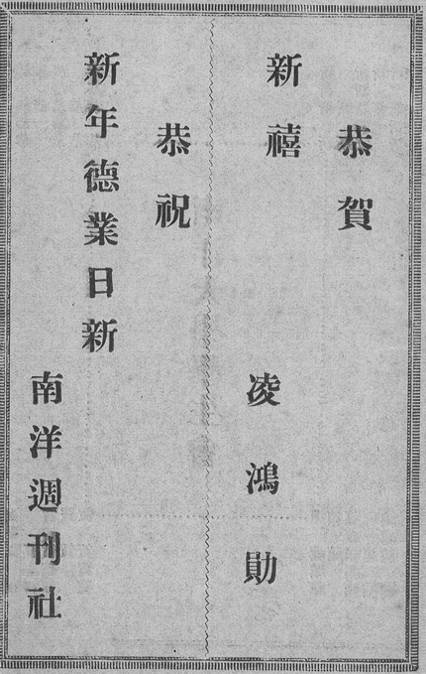 恭賀
新禧
凌鴻勛
恭祝
新年德業日新
南洋週刊社